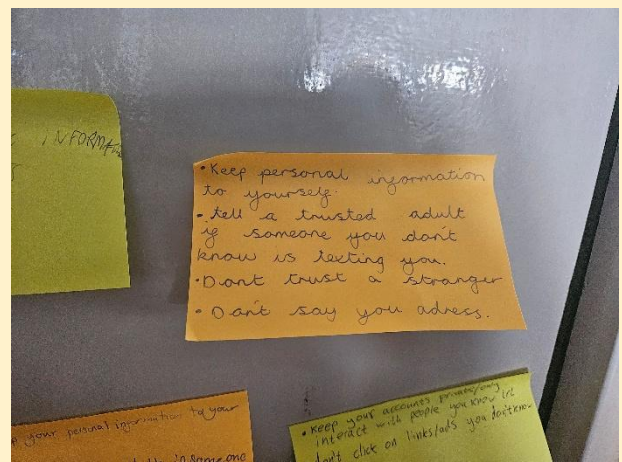 INFORMATION
• Keep personal information
to yourself.
• tell a trusted adult
if someone you don't
know is texting you.
• Dont trust a stranger
• Don't say you adress.
your personal information to your
someone
• Keep your accounts private/only
interact with people you know irl
don't click on links/ads you don't know